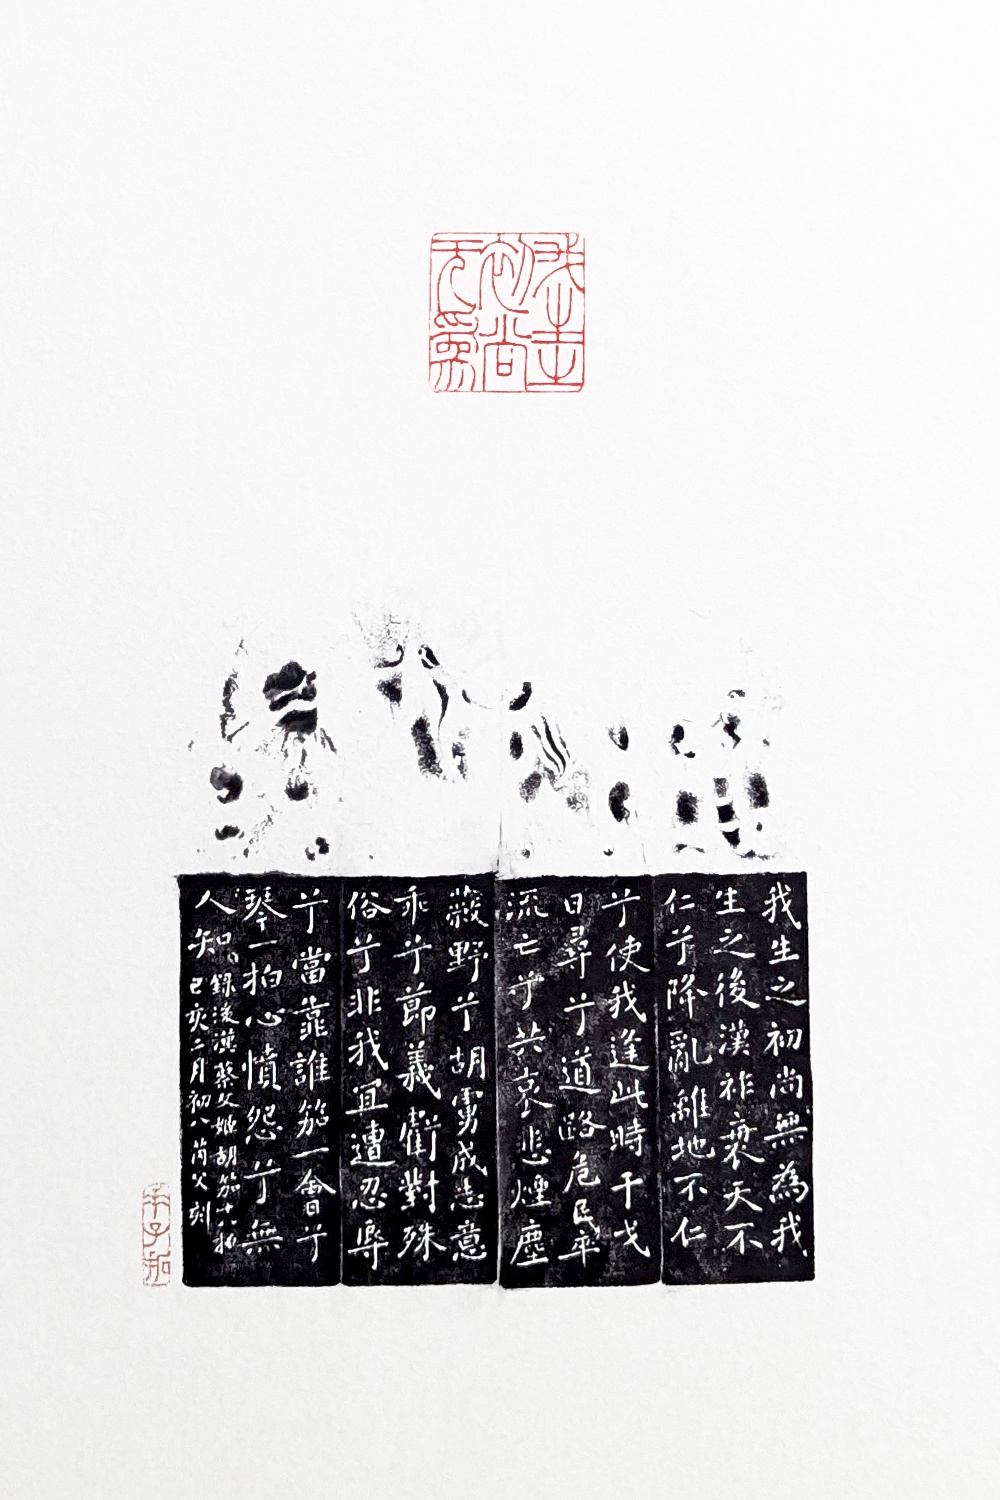 我生之初尚無為
我生之初尚無為我
生之後漢祚衰天不
仁兮降亂離地不仁
兮使我逢此時干戈
日尋兮道路危民卒
流亡兮共哀悲煙塵
蔽野兮胡虜盛志意
乖兮節義虧對殊
俗兮非我宜遭忍辱
兮當靠誰笳一會兮
琴一拍心憤怨兮無
人知
錄後漢蔡文姬胡笳十八拍
己亥二月初八芮父刻